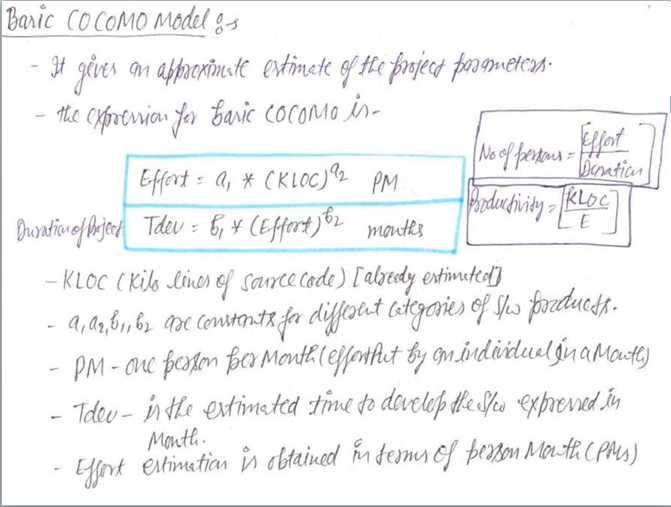 Basic COCOMO Model :-
- It gives an approximate estimate of the project parameters.
- the expression for basic COCOMO is-
No of persons = [Effort / Duration]
Effort = a₁ * (KLOC)^a₂ PM
Productivity = [KLOC / E]
Duration of Project Tdev = b₁ * (Effort)^b₂ months
- KLOC (Kilo lines of source code) [already estimated]
- a₁, a₂, b₁, b₂ are constants for different categories of S/w products.
- PM - one person per Month (effort Put by an individual in a Month)
- Tdev - is the estimated time to develop the S/w expressed in
Month.
- Effort estimation is obtained in terms of person Month (PMs)